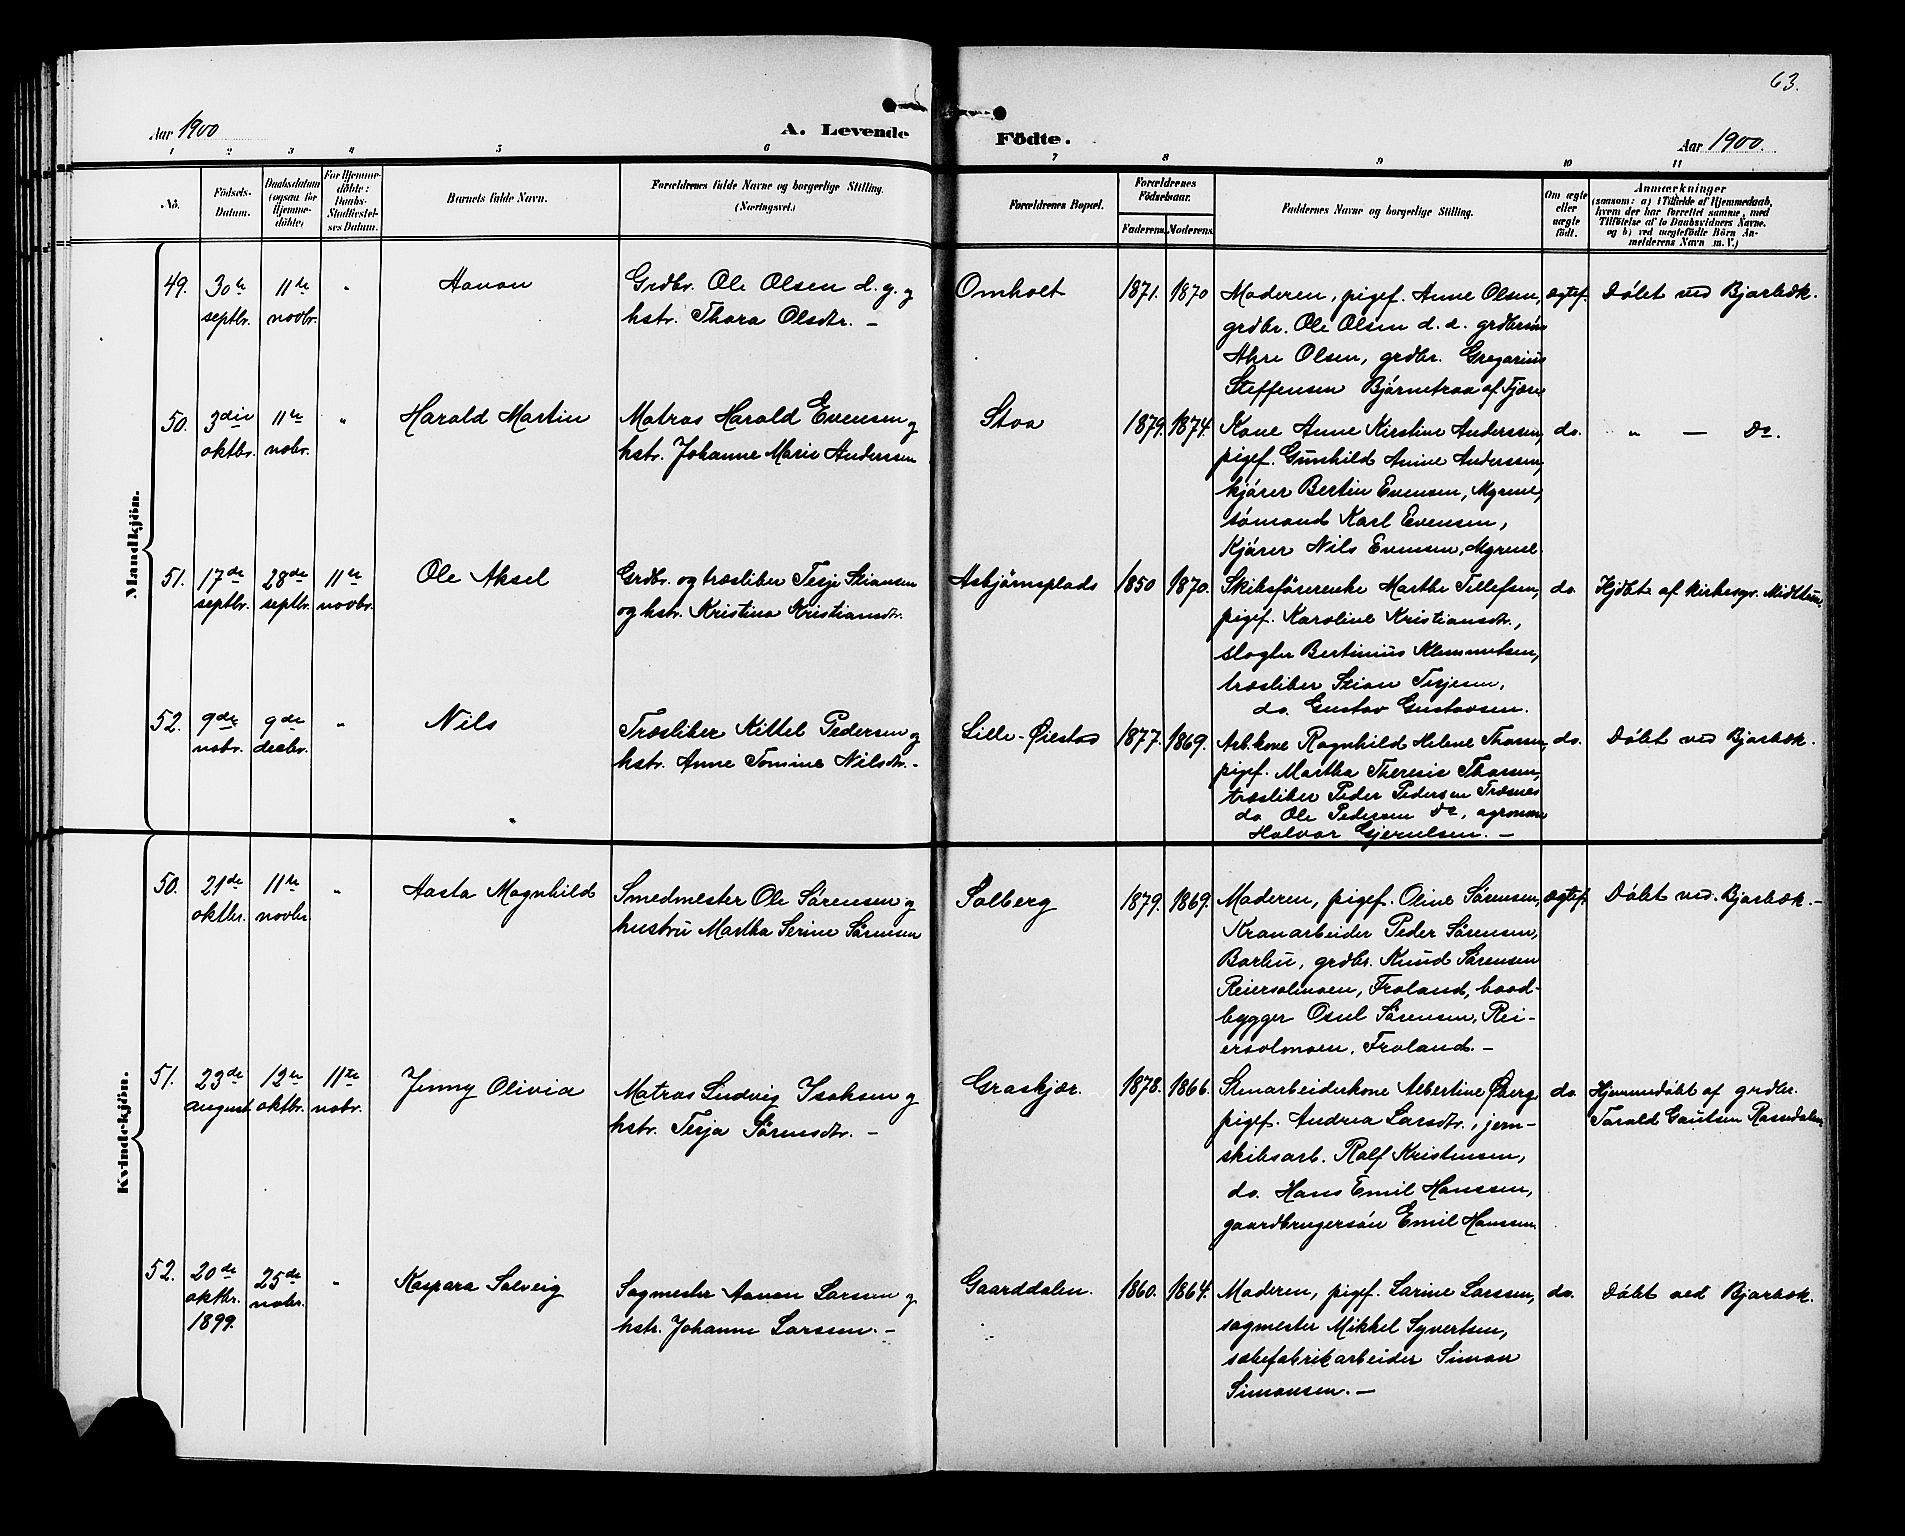 63.
Aar 1900
A. Levende
Födte.
Aar 1900.
1 2 3 4 5 6 7 8 9 10 11
No.
Födsels-
Datum.
Daabsdatum
(ogsaa for
Hjemme-
döbte)
For Hjemme-
döbte:
Daabs-
Stadfæstel-
ses Datum.
Barnets fulde Navn.
Forældrenes fulde Navne og borgerlige Stilling.
(Næringsvei.)
Forældrenes Bopæl.
Forældrenes
Födselsaar.
Faderens. Moderens.
Faddernes Navne og borgerlige Stilling.
Om ægte
eller
uægte
födt.
Anmærkninger
(saasom: a) i Tilfælde af Hjemmedaab,
hvem der har forrettet samme, med
Tilföielse af to Daabsvidners Navne.
og b) ved uægtefödte Börn An-
melderens Navn m. V.)
Mandkjön.
49.
30te
septbr.
11te
novbr.
"
Aanon
Grdbr. Ole Olsen d. y. og
hstr. Thora Olsdtr. –
Omholt
1871. 1870
Moderen, pigef. Anne Olsen,
grdbr. Ole Olsen d. æ. grdbrsøn
Ahre Olsen, grdbr. Gregarius
Steffensen Bjørnetraa af Fjære
ægtef.
Døbt ved Bjarbæk.
50.
3die
oktbr.
11te
nobr.
"
Harald Martin
Matros Harald Evensen og
hstr. Johanne Marie Anderssen
Stoa
1879. 1874.
Kone Anne Kirstine Anderssen,
pigef. Gunhild Anine Anderssen,
kjører Bertin Evensen, Myrene,
sømand Karl Evensen,
Kjører Nils Evensen, Myrene.
do.
" — Do.
51.
17de
septbr.
28de
septbr.
11te
novbr.
Ole Aksel
Grdbr. og træsliber Terje Stiansen
og hstr. Kristina Kristiansdtr.
Asbjørnsplads
1850 1870.
Skibsførerenke Marthe Tellefsen,
pigef. Karoline Kristiansdtr.,
slagter Bertinius Klemmetsen,
træsliber Stian Terjesen,
do. Gustav Gustavsen.
do.
Hjdbt. af kirkesgr. Midttun
52.
9de
nobr.
9de
decbr.
"
Nils
Træsliber Kittel Pedersen og
hstr. Anne Tomine Nilsdtr. –
Lille-Øiestad
1877. 1869.
Arb.kone Ragnhild Helene Thorsen,
pigef. Martha Theresie Thorsen,
træsliber Peder Pedersen Træsnes
do Ole Pedersen Do, agronom
Halvor Gjerulsen. –
do.
Døbt ved Bjarbæk.
Kvindekjön.
50.
21de
oktbr.
11te
novbr.
"
Aasta Magnhild
Smedmester Ole Sørensen og
hustru Martha Serine Sørensen
Solberg
1879. 1869.
Moderen, pigef. Oline Sørensen,
Kranarbeider Peder Sørensen,
Barbu, grdbr. Knud Sørensen
Reiersølmoen, Froland, baad-
bygger Osul Sørensen, Rei-
ersølmoen, Froland. –
ægtef.
Døbt ved Bjarbæk. –
51.
23de
august
12te
oktbr.
11te
nobr.
Jenny Olivia
Matros Ludvig Isaksen og
hstr. Terja Sørensdtr. –
Graskjær.
1878. 1866.
Stenarbeiderkone Albertine Øberg
pigef. Andrea Larsdtr., jern-
skibsarb. Ralf Kristensen,
do. Hans Emil Hanssen,
gaardbrugersøn Emil Hanssen.
do.
Hjemmedøbt af grdbr.
Torald Gautsen Rosedalen
52.
20de
oktbr.
1899.
25de
nobr.
"
Kaspara Solveig
Sagmester Aanon Larssen og
hstr. Johanne Larssen. –
Gaarddalen.
1860. 1864.
Moderen, pigef. Sarine Larssen,
sagmester Mikkel Syvertsen,
sæbefabrikarbeider Simon
Simonsen. –
do.
Døbt ved Bjarbæk.